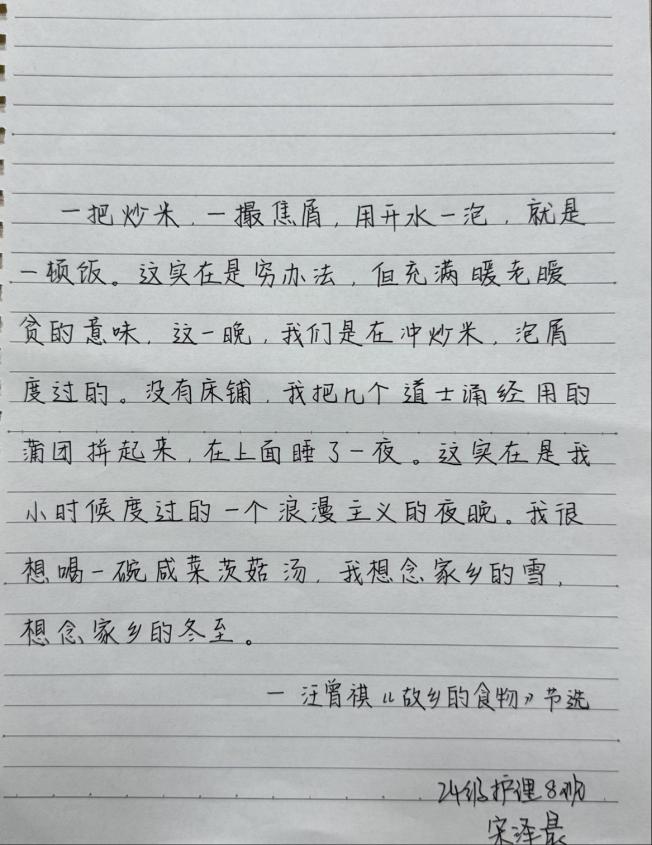 一把炒米，一撮焦屑，用开水一泡，就是
一顿饭。这实在是穷办法，但充满暖老暖
贫的意味，这一晚，我们是在冲炒米，泡屑
度过的。没有床铺，我把几个道士诵经用的
蒲团拼起来，在上面睡了一夜。这实在是我
小时候度过的一个浪漫主义的夜晚。我很
想喝一碗咸菜茨菇汤，我想念家乡的雪，
想念家乡的冬至。
— 汪曾祺《故乡的食物》节选
24级护理8班
宋泽晨